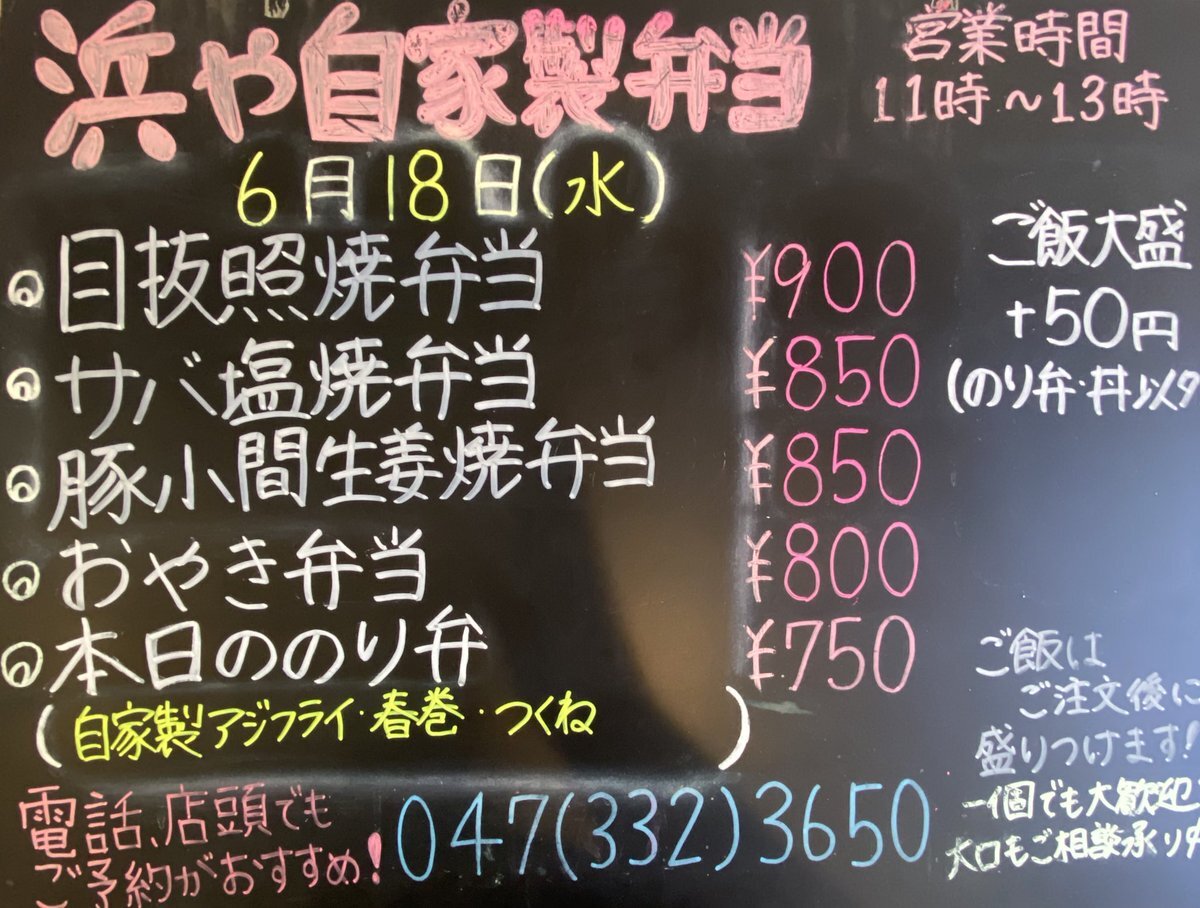 浜や自家製弁当
営業時間
11時～13時
6月18日(水)
目抜照焼弁当 ¥900
サバ塩焼弁当 ¥850
豚小間生姜焼弁当 ¥850
おやき弁当 ¥800
本日ののり弁 ¥750
(自家製アジフライ・春巻・つくね)
ご飯大盛
+50円
(のり弁・丼以外
ご飯は
ご注文後に
盛りつけます!
一個でも大歓迎
大口もご相談承り
電話、店頭でも
ご予約がおすすめ!
047(332)3650